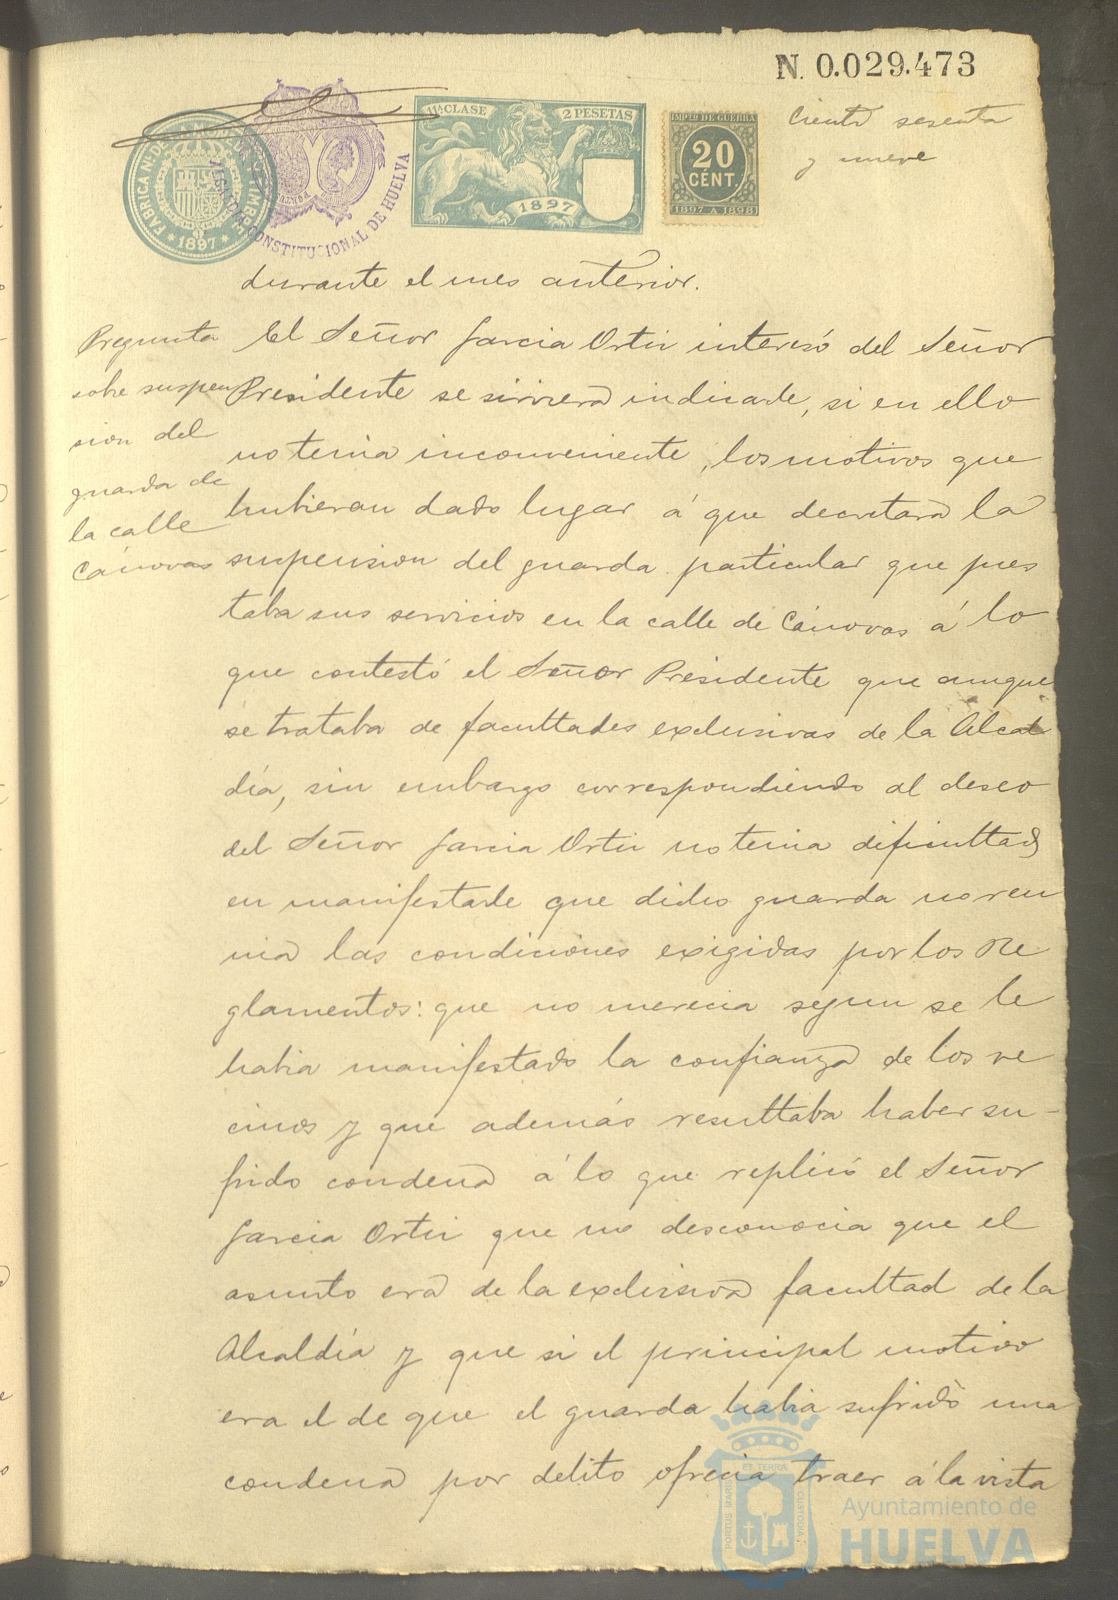 N. 0.029.473
Ciento sesenta
y nueve
FABRICA NAL DE MONEDA Y TIMBRE
* 1897 *
CONSTITUCIONAL DE HUELVA
11ª CLASE
2 PESETAS
1897
IMPTO DE GUERRA
20
CÉNT.
1897 A 1898
durante el mes anterior.
Pregunta
sobre suspen
sion del
guarda de
la calle
Cánovas
El Señor Garcia Ortiz interesó del Señor
Presidente se sirviera indicarle, si en ello
no tenia inconveniente, los motivos que
hubieran dado lugar á que decretara la
suspension del guarda particular que pres
taba sus servicios en la calle de Cánovas á lo
que contestó el Señor Presidente que aunque
se trataba de facultades exclusivas de la Alcal
día, sin embargo correspondiendo al deseo
del Señor Garcia Ortiz no tenia dificultad
en manifestarle que dicho guarda no reu
nia las condiciones exigidas por los Re
glamentos: que no merecia segun se le
habia manifestado la confianza de los ve
cinos y que además resultaba haber su-
frido condena á lo que replicó el Señor
Garcia Ortiz que no desconocia que el
asunto era de la exclusiva facultad de la
Alcaldía y que si el principal motivo
era el de que el guarda habia sufrido una
condena por delito ofrecia traer á la vista
PORTUS MARIS ET TERRÆ CUSTODIA
Ayuntamiento de
HUELVA